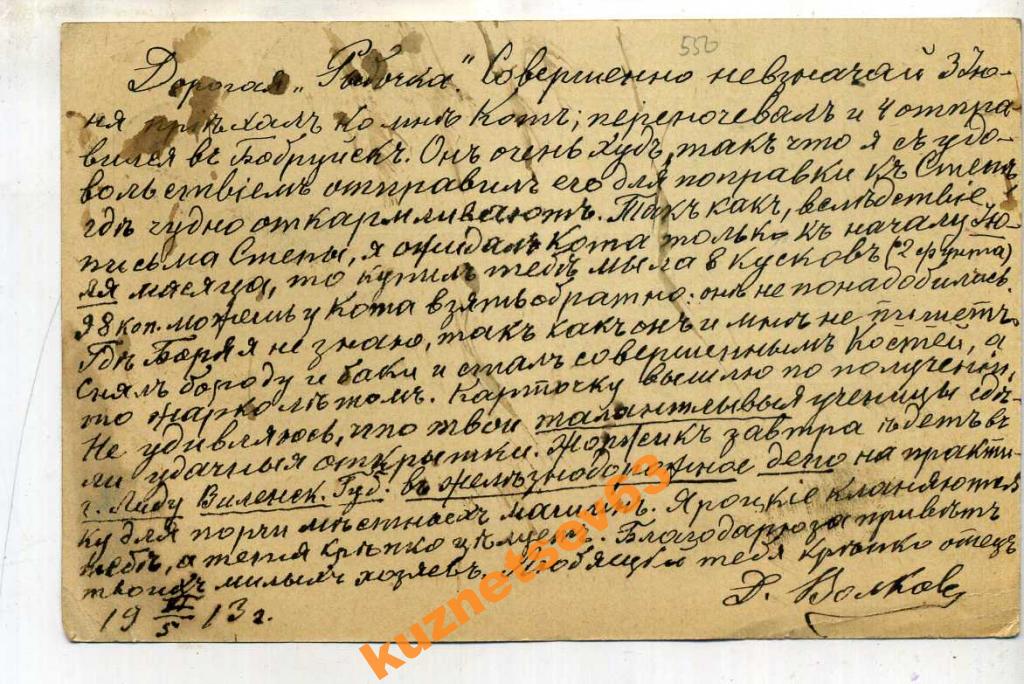 550
Дорогая „Рыбочка". Совершенно невзначай 3 Iю-
ня прiѣхалъ ко мнѣ Котъ; переночевалъ и 4 отпра
вился въ Бобруйскъ. Онъ очень худъ, такъ что я съ удо-
вольствiемъ отправилъ его для поправки къ Степѣ,
гдѣ чудно откармливаютъ. Такъ какъ, вслѣдствiе
письма Степы, я ожидалъ Кота только къ началу Iю-
ля мѣсяца, то купилъ тебѣ мыла 8 кусковъ (2 фунта)
98 коп. можешь у Кота взять обратно: онѣ не понадобились.
Гдѣ Боря я не знаю, такъ какъ онъ и мнѣ не пишетъ.
Снялъ бороду и баки и сталъ совершеннымъ Костей, а
то жарко лѣтомъ. Карточку вышлю по полученiи.
Не удивляюсь, что твои талантливыя ученицы сдѣ-
ли удачныя открытки. Жоржикъ завтра ѣдетъ въ
г. Лиду Виленск. Губ. въ желѣзнодорожное депо на практи-
ку для порчи мѣстныхъ машинъ. Яроцкiе кланяются
тебѣ, а тетя крѣпко цѣлуетъ. Благодарю за привѣтъ
твоихъ милыхъ хозяевъ. Любящiй тебя крѣпко отецъ
Д. Волковъ
19 VI/5 13 г.
kuznetsov63